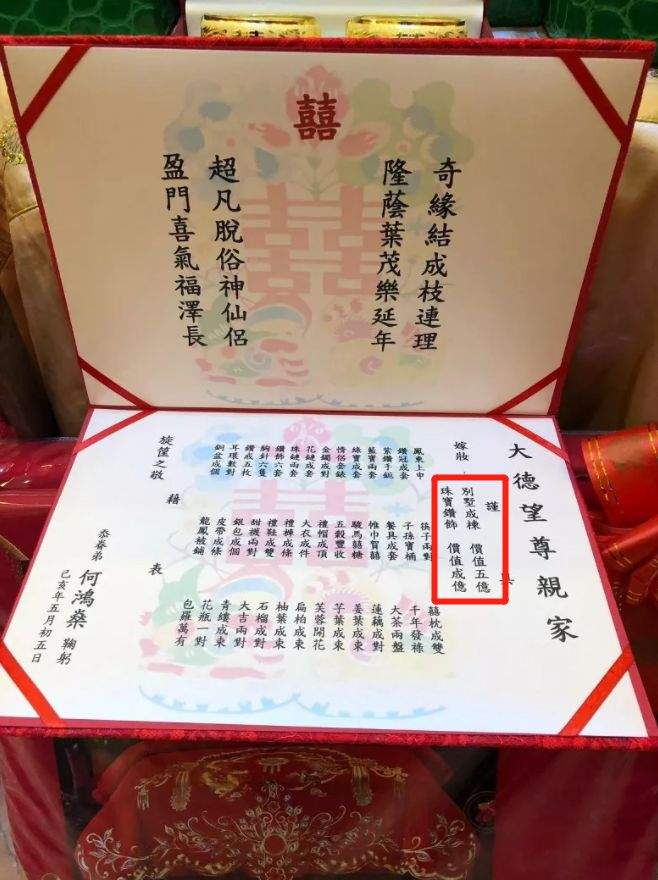 囍
奇緣結成枝連理
隆蔭葉茂樂延年
超凡脫俗神仙侶
盈門喜氣福澤長
大德望尊親家
謹 具
別墅成棟 價值五億
珠寶鑽飾 價值成億
嫁妝
鑽冠成套
紫鑽手鈪
藍寶兩套
綠寶成套
情侶套錶
金鐲成對
花鏈成套
珠鏈兩套
鑽飾六套
胸針六隻
鑽戒五枚
耳環數對
銅盆成個
筷子兩對
子孫寶桶
餐具成套
帷巾賀囍
駿馬囍糖
五穀豐收
禮帽成頂
大衣成件
禮褲成條
禮鞋成雙
甜襪兩對
銀包成個
皮帶成條
龍鳳被鋪
囍枕成雙
千年發祿
大茶兩盤
蓮藕成對
姜葉成束
芋葉成束
芙蓉開花
扁柏成束
柚葉成束
石榴成對
大吉兩對
青縷成束
花瓶一對
包羅萬有
藉 表
筐之敬
忝眷弟 何鴻燊 鞠躬
己亥年五月初五日